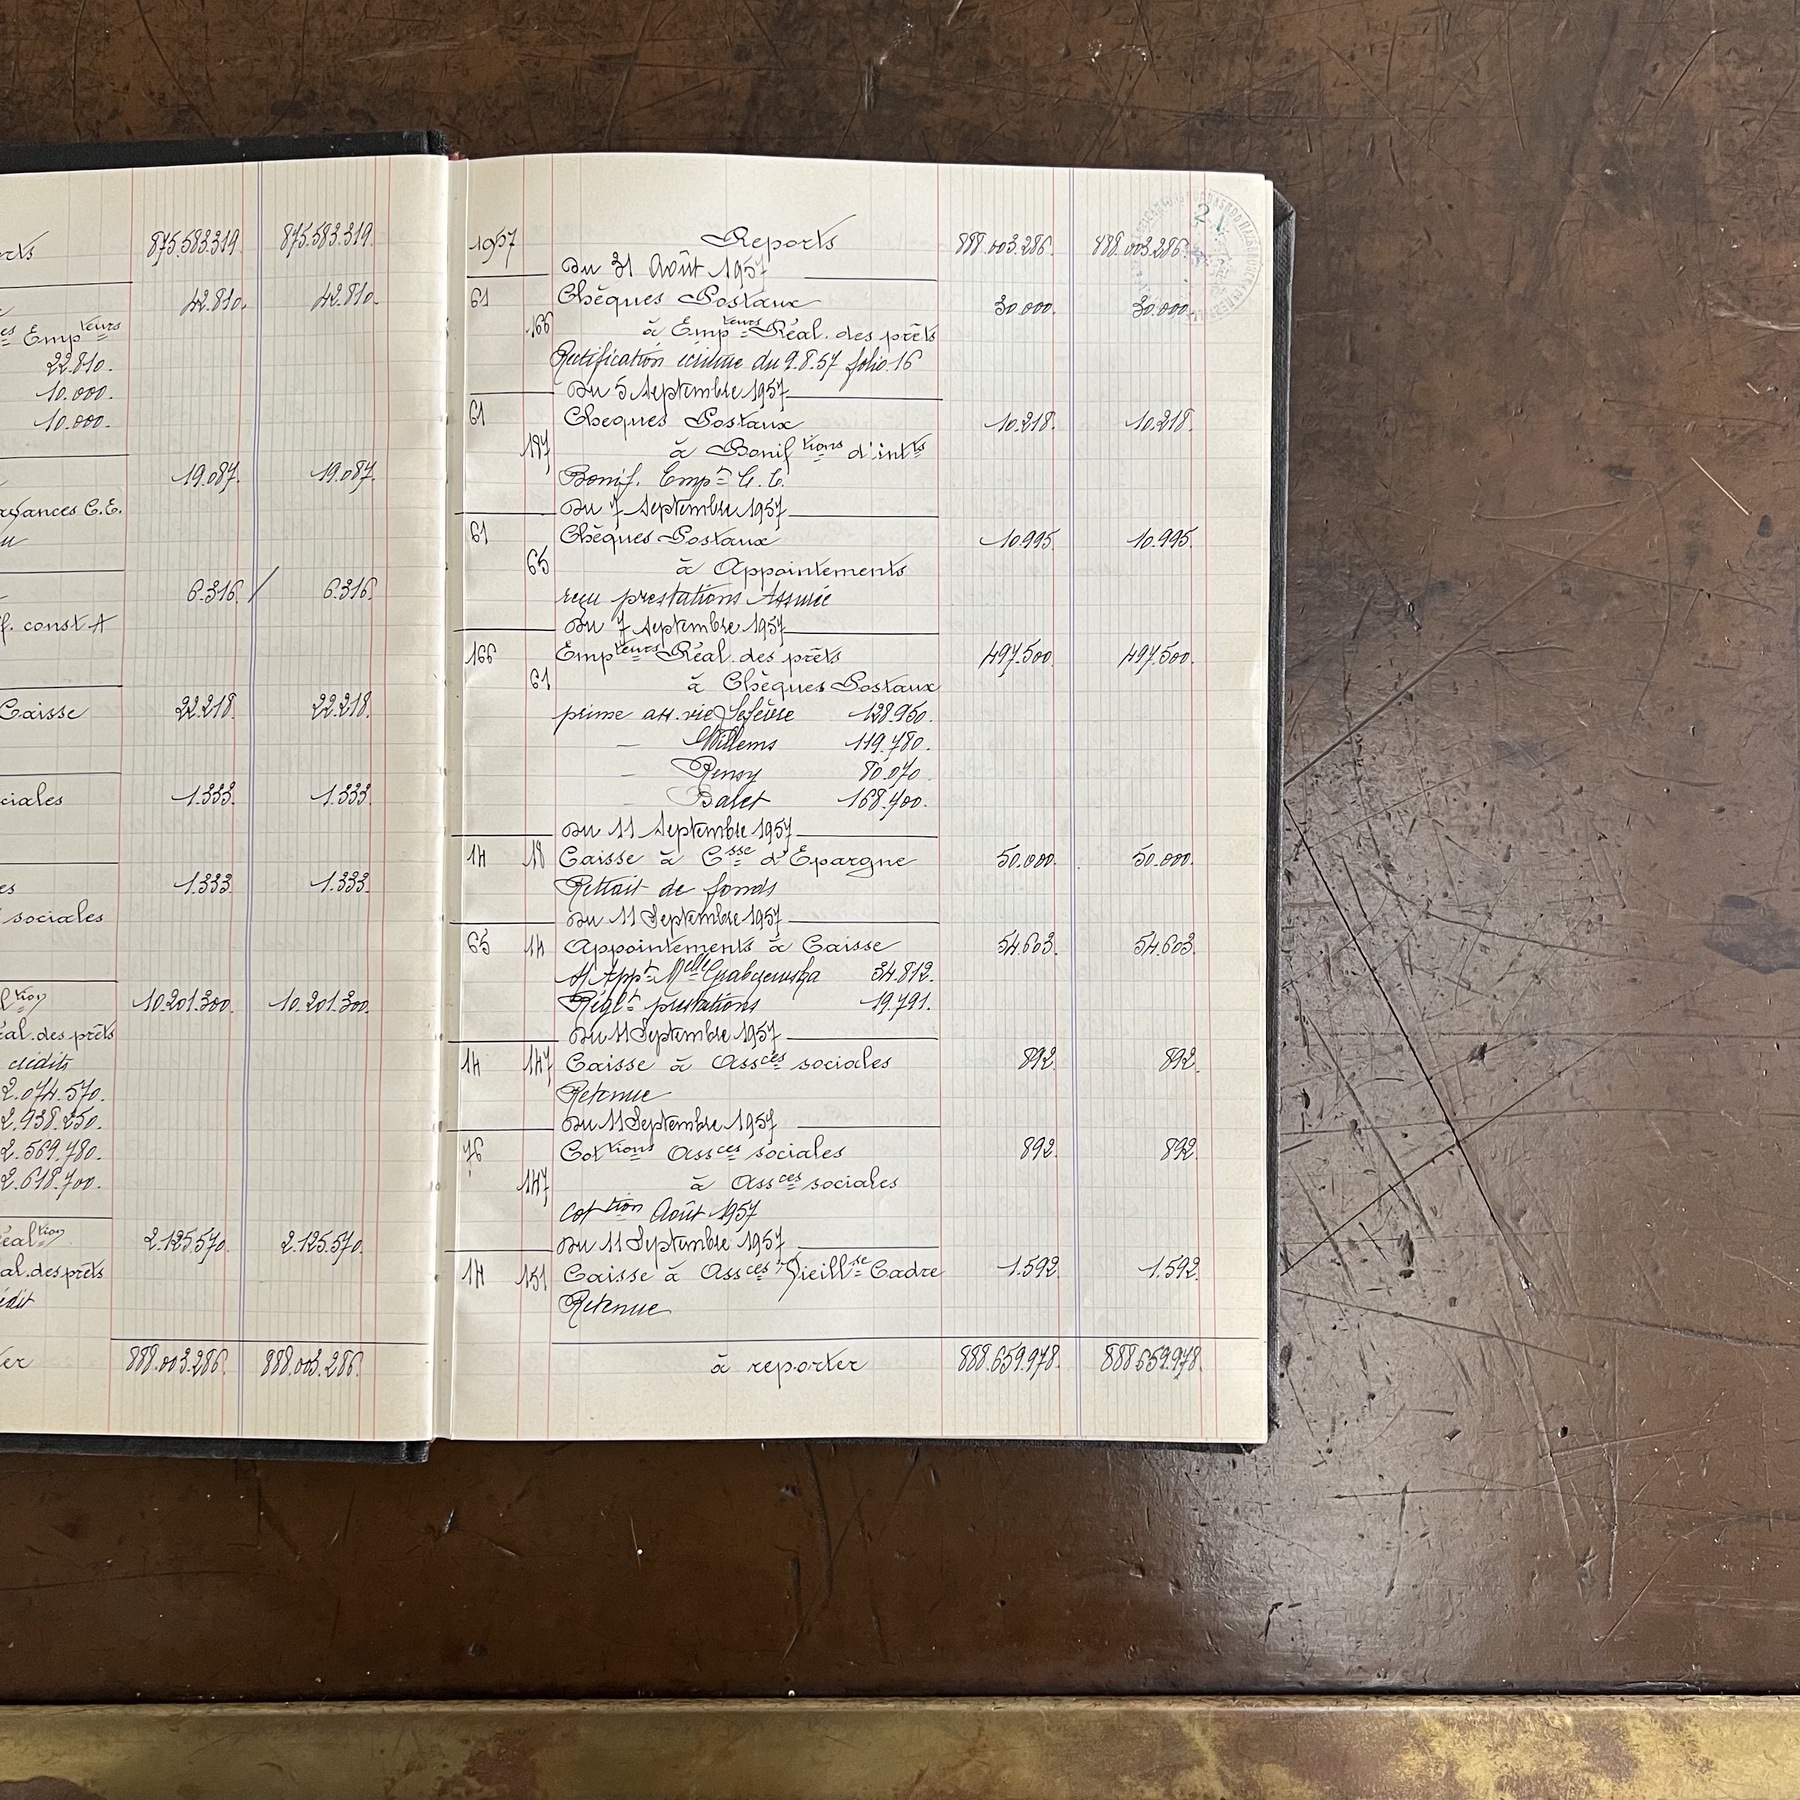 rts 875.583.319. 875.583.319.
42.810. 42.810.
es Empteurs
22.810.
10.000.
10.000.
19.087. 19.087.
ances C.E.
6.316. / 6.316.
f. const A
Caisse 22.218. 22.218.
ciales 1.333. 1.333.
es 1.333. 1.333.
sociales
l tion 10.201.300. 10.201.300.
éal. des prêts
crédits
2.074.570.
2.938.250.
2.569.780.
2.618.700.
éaltion 2.125.570. 2.125.570.
al. des prêts
édit
ter 888.003.286. 888.003.286.
1957 Reports 888.003.286. 888.003.286.
21
Du 31 Août 1957
61 Chèques Postaux 30.000. 30.000.
166 à Empteurs Réal. des prêts
Rectification écriture du 9.8.57 folio 16
Du 5 Septembre 1957
61 Cheques Postaux 10.218. 10.218.
187 à Bonif tions d'intts
Bonif. Empt C.C.
Du 7 Septembre 1957
61 Chèques Postaux 10.995. 10.995.
65 à Appointements
reçu prestations Assurée
Du 7 Septembre 1957
166 Empteurs Réal. des prêts 497.500. 497.500.
61 à Chèques Postaux
prime ass. vie Lefèvre 128.950.
— Willems 119.780.
— Rensy 80.070.
— Balet 168.700.
Du 11 Septembre 1957
14 18 Caisse à Csse d'Epargne 50.000. 50.000.
Retrait de fonds
Du 11 Septembre 1957
65 14 Appointements à Caisse 54.603. 54.603.
Appt Melle 34.812.
Réglt prestations 19.791.
Du 11 Septembre 1957
14 147 Caisse à Assces sociales 892. 892.
Retenue
Du 11 Septembre 1957
76 Cottions Assces sociales 892. 892.
147 à Assces sociales
cottion Août 1957
Du 11 Septembre 1957
14 151 Caisse à Assces Vieillsse Cadre 1.592. 1.592.
Retenue
à reporter 888.659.978. 888.659.978.